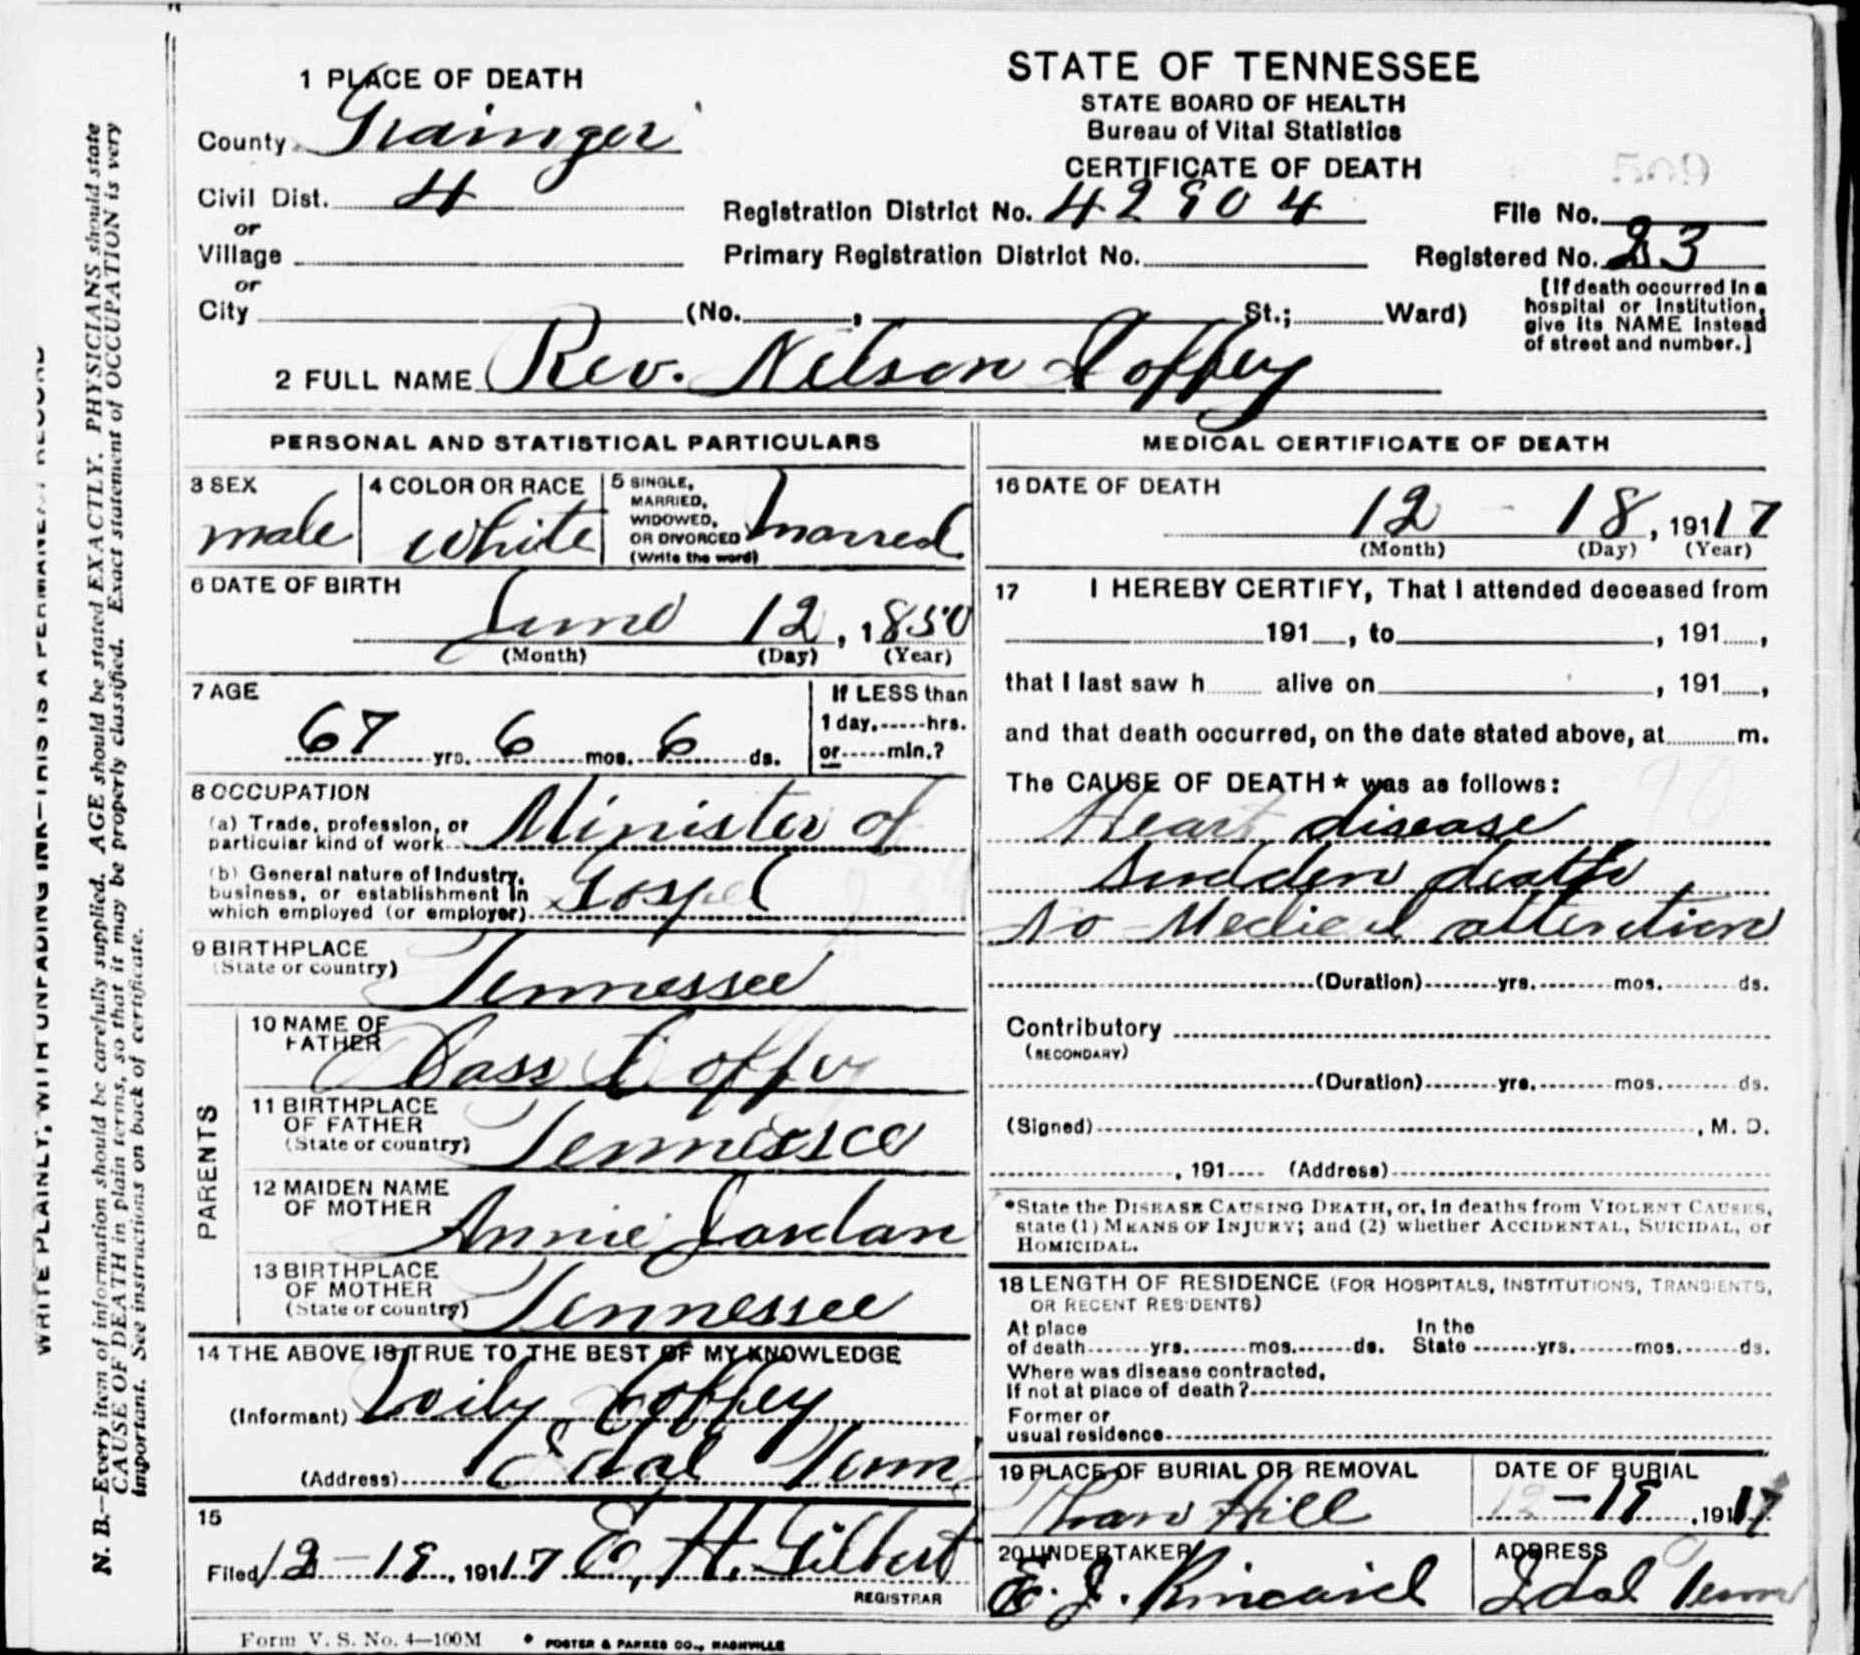 STATE OF TENNESSEE
STATE BOARD OF HEALTH
Bureau of Vital Statistics
CERTIFICATE OF DEATH
509
1 PLACE OF DEATH
County Grainger
Civil Dist. 4
or
Village
or
City (No. , St.; Ward)
Registration District No. 42904
Primary Registration District No.
File No.
Registered No. 23
[If death occurred in a
hospital or institution,
give its NAME instead
of street and number.]
2 FULL NAME Rev. Nelson Coffey
PERSONAL AND STATISTICAL PARTICULARS
3 SEX
male
4 COLOR OR RACE
White
5 SINGLE,
MARRIED,
WIDOWED,
OR DIVORCED
(Write the word)
Married
6 DATE OF BIRTH
June 12, 1850
(Month) (Day) (Year)
7 AGE
67 yrs. 6 mos. 6 ds.
If LESS than
1 day, hrs.
or min.?
8 OCCUPATION
(a) Trade, profession, or
particular kind of work Minister of
(b) General nature of industry,
business, or establishment in
which employed (or employer) Gospel
9 BIRTHPLACE
(State or country)
Tennessee
PARENTS
10 NAME OF
FATHER
Cass Coffey
11 BIRTHPLACE
OF FATHER
(State or country)
Tennessee
12 MAIDEN NAME
OF MOTHER
Annie Jordan
13 BIRTHPLACE
OF MOTHER
(State or country)
Tennessee
14 THE ABOVE IS TRUE TO THE BEST OF MY KNOWLEDGE
(Informant) Coffey
(Address) Idal Tenn
15
Filed 12-19, 1917 E. H. Gilbert
REGISTRAR
MEDICAL CERTIFICATE OF DEATH
16 DATE OF DEATH
12 - 18, 1917
(Month) (Day) (Year)
17 I HEREBY CERTIFY, That I attended deceased from
191 , to , 191 ,
that I last saw h alive on , 191 ,
and that death occurred, on the date stated above, at m.
The CAUSE OF DEATH* was as follows:
Heart disease
Sudden death
No Medical attention
(Duration) yrs. mos. ds.
Contributory
(SECONDARY)
(Duration) yrs. mos. ds.
(Signed) , M. D.
, 191 (Address)
*State the DISEASE CAUSING DEATH, or, in deaths from VIOLENT CAUSES,
state (1) MEANS OF INJURY; and (2) whether ACCIDENTAL, SUICIDAL, or
HOMICIDAL.
18 LENGTH OF RESIDENCE (FOR HOSPITALS, INSTITUTIONS, TRANSIENTS,
OR RECENT RESIDENTS)
At place
of death yrs. mos. ds.
In the
State yrs. mos. ds.
Where was disease contracted,
If not at place of death?
Former or
usual residence
19 PLACE OF BURIAL OR REMOVAL
Hill
DATE OF BURIAL
12-19, 1917
20 UNDERTAKER
E. J. Kincaid
ADDRESS
Idol Tenn
Form V. S. No. 4—100M
FOSTER & PARKES CO., NASHVILLE
WRITE PLAINLY, WITH UNFADING INK—THIS IS A PERMANENT RECORD
N. B.—Every item of information should be carefully supplied. AGE should be stated EXACTLY. PHYSICIANS should state
CAUSE OF DEATH in plain terms, so that it may be properly classified. Exact statement of OCCUPATION is very
important. See instructions on back of certificate.